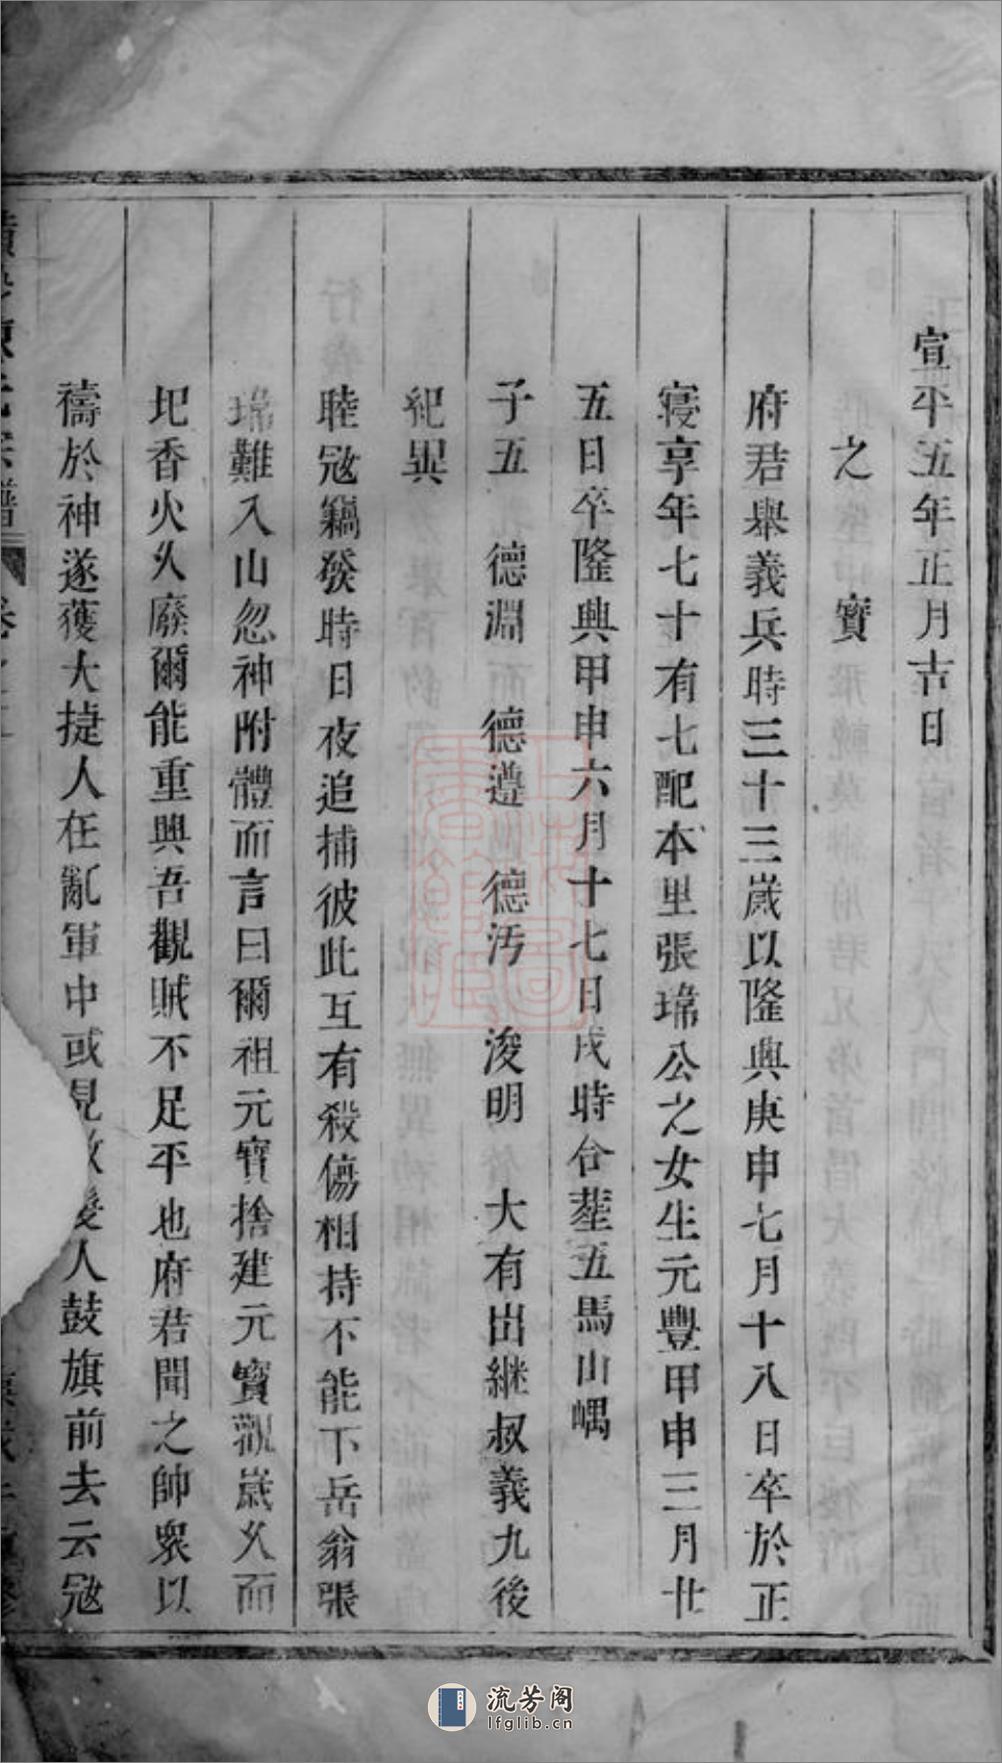 宣平五年正月吉日
之寶
府君舉義兵時三十三歲以隆興庚申七月十八日卒於正
寢享年七十有七配本里張瑞公之女生元豐甲申三月廿
五日卒隆興甲申六月十七日戌時合塟五馬山嵎
子五 德淵 德遵 德汚 浚明 大有出継叔義九後
紀異
睦冦竊發時日夜追捕彼此互有殺傷相持不能下岳翁張
瑞難入山忽神附體而言曰爾祖元寶捨建元寶觀嵗乆而
圯香火乆廢爾能重興吾觀賊不足平也府君聞之帥衆以
禱於神遂獲大捷人在亂軍中或見 人鼓旗前去云冦
氏宗譜
流芳阁
lfglib.cn